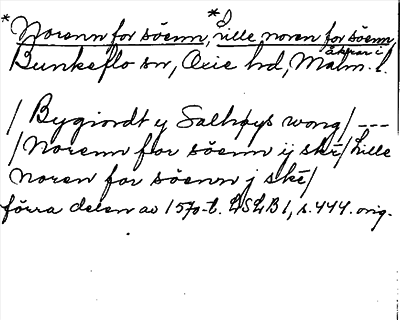 *Norenn for söenn, *Lille noren for söenn,
åkrar i
Bunkeflo sn, Oxie hd, Malm. l.
/ Bygiordt y Salhøys wong/ ---
/Norenn for söenn ij ske/ Lille
noren for söenn j ske/
förra delen av 1570-t. LSLB 1, s. 444. orig.